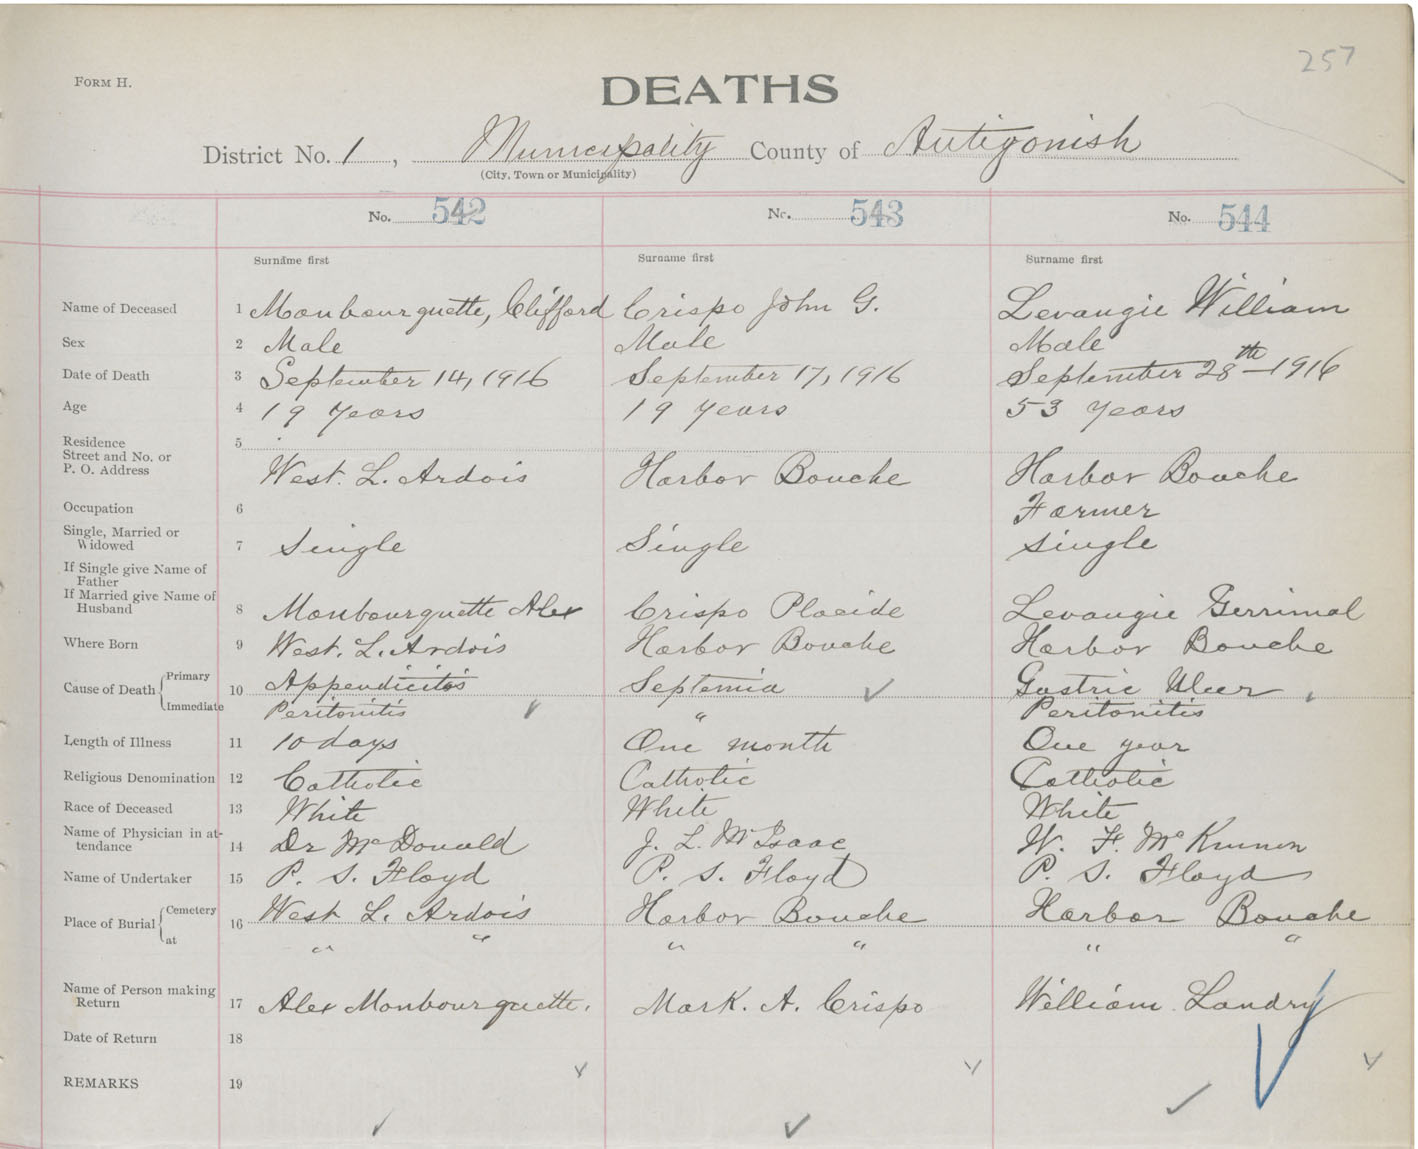 257
FORM H.
DEATHS
District No. 1, Municipality County of Antigonish
(City, Town or Municipality)
No. 542 No. 543 No. 544
Surname first Surname first Surname first
Name of Deceased 1 Monbourguette, Clifford Crispo John G. Levangie William
Sex 2 Male Male Male
Date of Death 3 September 14, 1916 September 17, 1916 September 28th 1916
Age 4 19 years 19 years 53 years
Residence 5
Street and No. or
P. O. Address West. L. Ardois Harbor Bouche Harbor Bouche
Occupation 6 Farmer
Single, Married or
Widowed 7 Single Single Single
If Single give Name of
Father
If Married give Name of
Husband 8 Monbourguette Alex Crispo Placide Levangie Gerrimal
Where Born 9 West. L. Ardois Harbor Bouche Harbor Bouche
Cause of Death Primary 10 Appendicitis Septemia Gastric Ulcer
Immediate Peritonitis " Peritonitis
Length of Illness 11 10 days One month One year
Religious Denomination 12 Catholic Catholic Catholic
Race of Deceased 13 White White White
Name of Physician in at-
tendance 14 Dr McDonald J. L. McIsaac W. F. McKinnon
Name of Undertaker 15 P. S. Floyd P. S. Floyd P. S. Floyd
Place of Burial Cemetery 16 West L. Ardois Harbor Bouche Harbor Bouche
at " " " " " "
Name of Person making
Return 17 Alex Monbourguette. Mark. A. Crispo William Landry
Date of Return 18
REMARKS 19